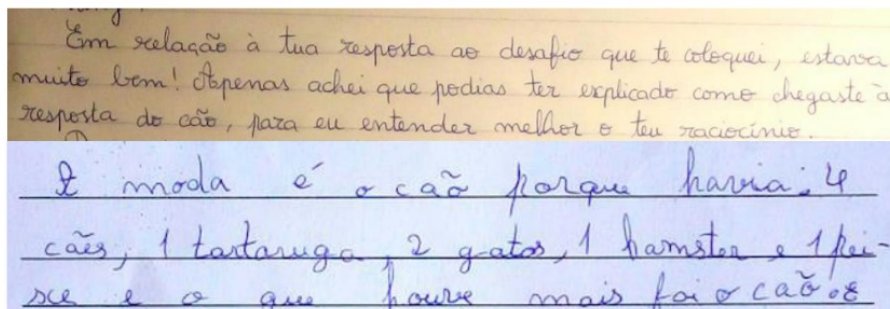 Em relação à tua resposta ao desafio que te coloquei, estava
muito bom! Apenas achei que podias ter explicado como chegaste à
resposta do cão, para eu entender melhor o teu raciocínio.
A moda é o caõ porque havia: 4
cães, 1 tartaruga, 2 gatos, 1 hamster e 1 pei-
xe e o que houve mais foi o caõ.